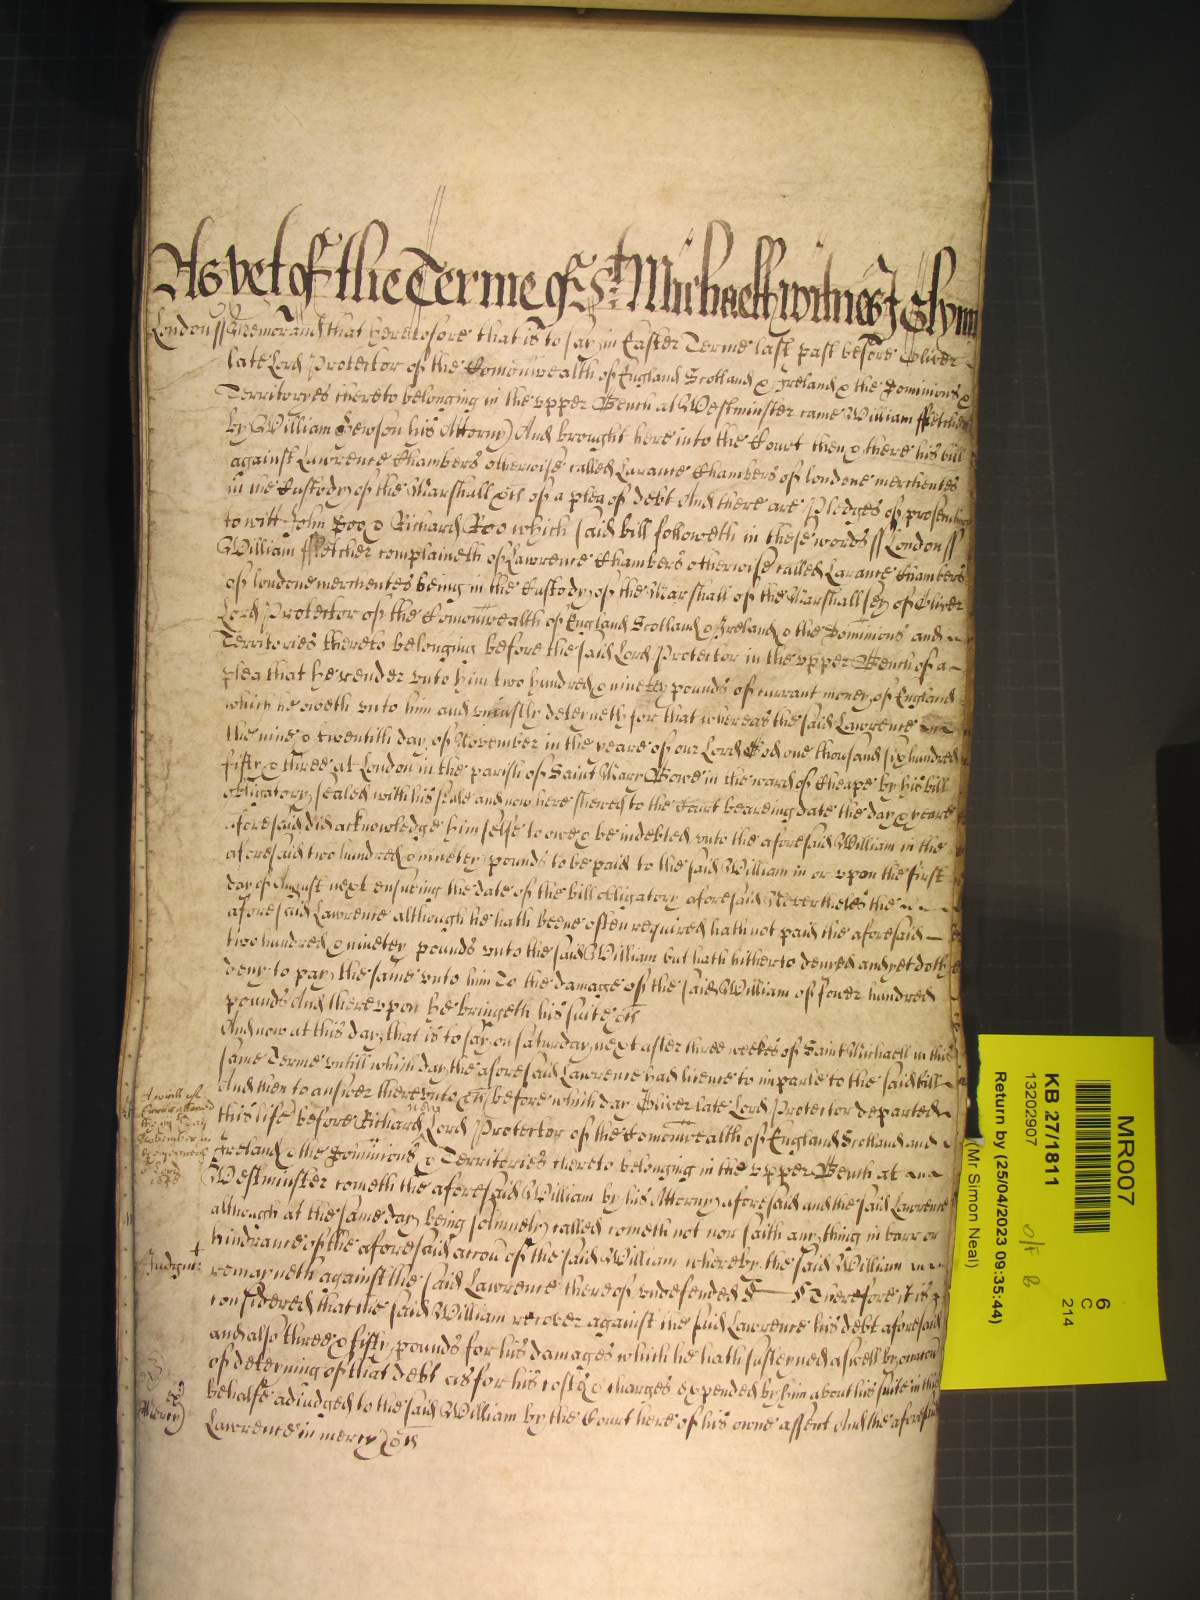 As yet of the Terme of St Michaell witnes J Glynn
London ss Memorand that heretofore that is to say in Easter Terme last past before Oliver
late Lord Protector of the Comonwealth of England Scotland & Ireland & the Dominions &
Territoryes thereto belonging in the vpper Bench at Westminster came William ffletcher
by William Hewson his Attorny And brought here into the Court then & there his bill
against Lawrence Chambers otherwise called Larance Chambers of londone merchentes
in the Custody of the Marshall &c of a plea of debt And there are Pledges of prosecuting
to witt John Doo & Richard Roo which said bill followeth in these words ss London ss
William ffletcher complaineth of Lawrence Chambers otherwise called Larance Chambers
of londone merchentes being in the Custody of the Marshall of the Marshallsey of Oliver
Lord Protector of the Comonwealth of England Scotland & Ireland & the Dominions and
Territories thereto belonging before the said Lord Protector in the vpper Bench of a
plea that he render vnto him two hundred & ninetey pounds of currant money of England
which he oweth vnto him and vniustly deteyneth for that whereas the said Lawrence
the nine & twentith day of November in the yeare of our Lord God one thousand six hundred
fifty & three at London in the parish of Saint Mary Bowe in the ward of Cheape by his bill
obligatory sealed with his seale and now here shewed to the Court beareing date the day & yeare
aforesaid did acknowledge himselfe to owe & be indebted vnto the aforesaid William in the
aforesaid two hundred & ninetey pounds to be paid to the said William in or vpon the first
day of August next ensueing the date of the bill obligatory aforesaid Neverthelesse the
aforesaid Lawrence although he hath beene often required hath not paid the aforesaid
two hundred & ninetey pounds vnto the said William but hath hitherto denyed and yet doth
deny to pay the same vnto him To the damage of the said William of fower hundred
pounds And therevpon he bringeth his suite &c
And now at this day that is to say on saturday next after three weekes of Saint Michaell in this
same Terme vntill which day the aforesaid Lawrence had licence to imparle to the said bill
And then to answer therevnto &c before which day Oliver late Lord Protector departed
this life before Richard now Lord Protector of the Comonwealth of England Scotland and
Ireland & the Dominions & Territories thereto belonging in the vpper Bench at
Westminster cometh the aforesaid William by his Attorny aforesaid and the said Lawrence
although at the same day being solemnely called cometh not nor saith any thing in barr or
hindrance of the aforesaid accon of the said William whereby the said William
Judgmt
remayneth against the said Lawrence thereof vndefended Therefore it is
considered that the said William recover against the said Lawrence his debt aforesaid
and also three & fifty pounds for his damages which he hath susteyned aswell by occacon
of deteyning of that debt as for his costs & charges expended by him about his suite in this
behalfe adiudged to the said William by the Court here of his owne assent And the aforesaid
Mercy
Lawrence in mercy &c
MR007
6
C
214
KB 27/1811
13202907
Return by (25/04/2023 09:35:44)
(Mr Simon Neal)